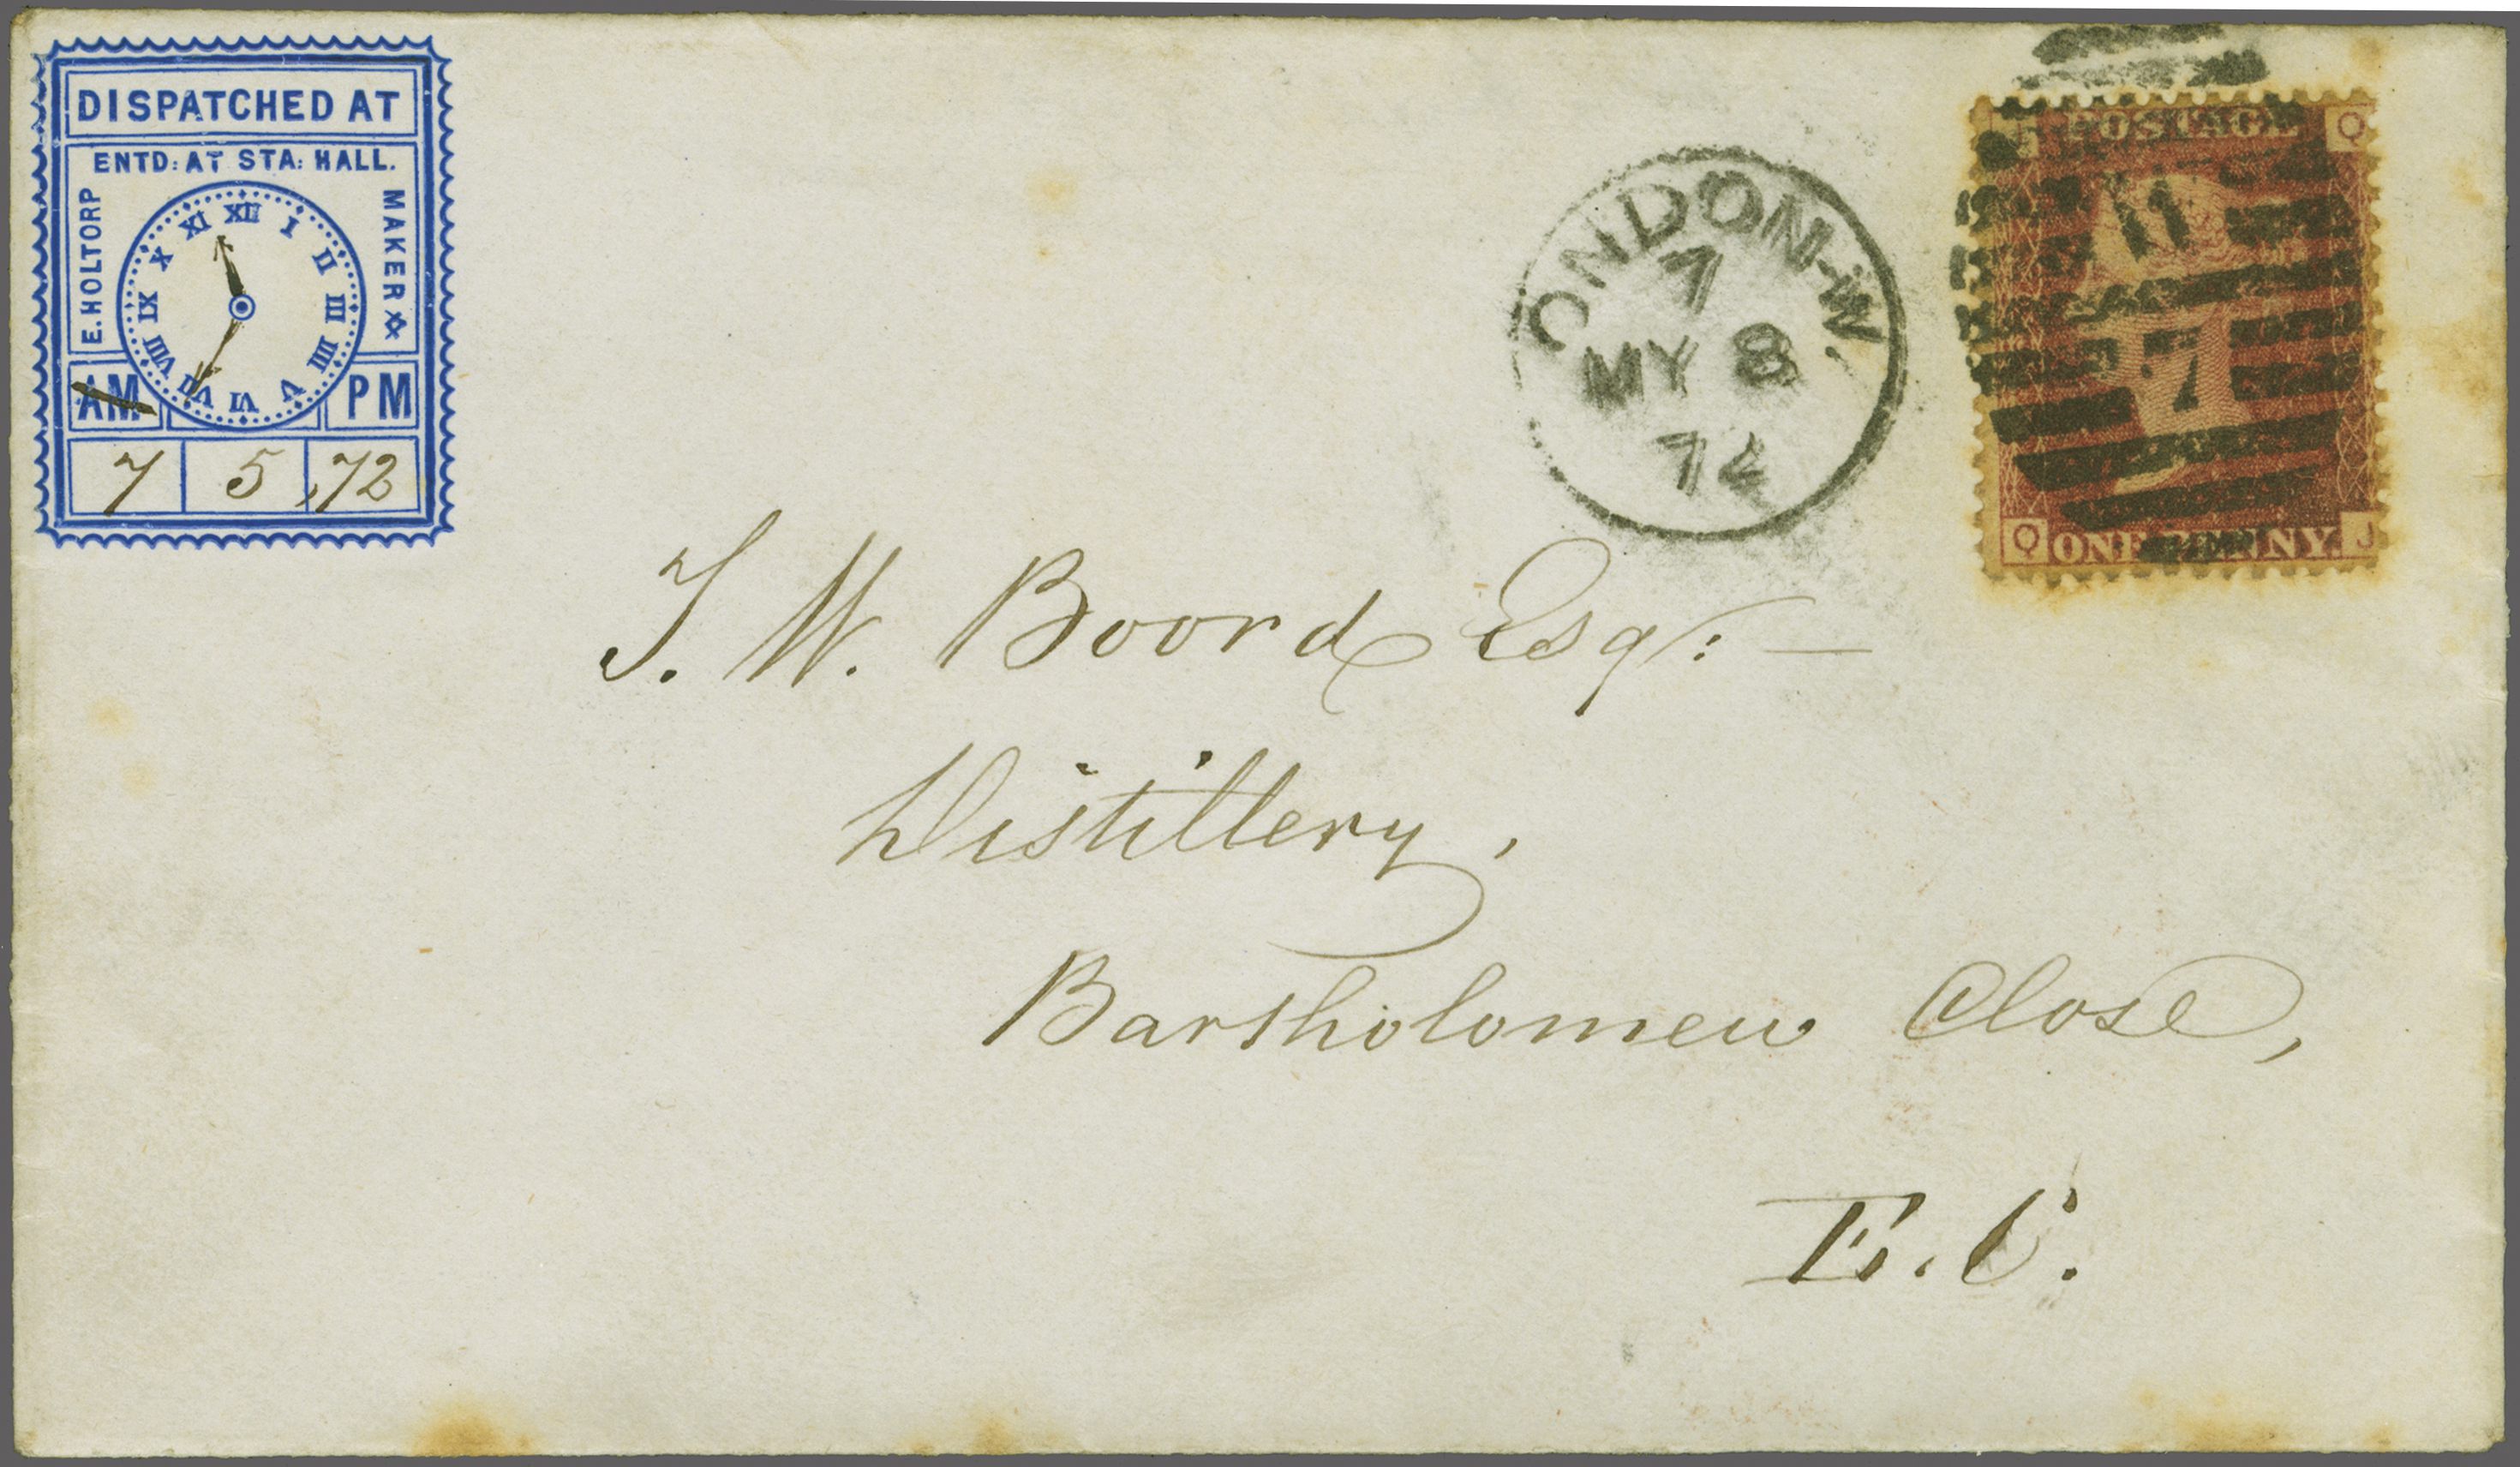 DISPATCHED AT
ENTD: AT STA: HALL.
E. HOLTORP
MAKER
XII
I
II
III
IIII
V
VI
VII
VIII
IX
X
XI
AM
PM
7 5 72
LONDON-W.
7
MY 8
72
POSTAGE
Q
11
7
Q ONE PENNY J
T. W. Boord Esqr: —
Distillery,
Bartholomew Close,
E.C.